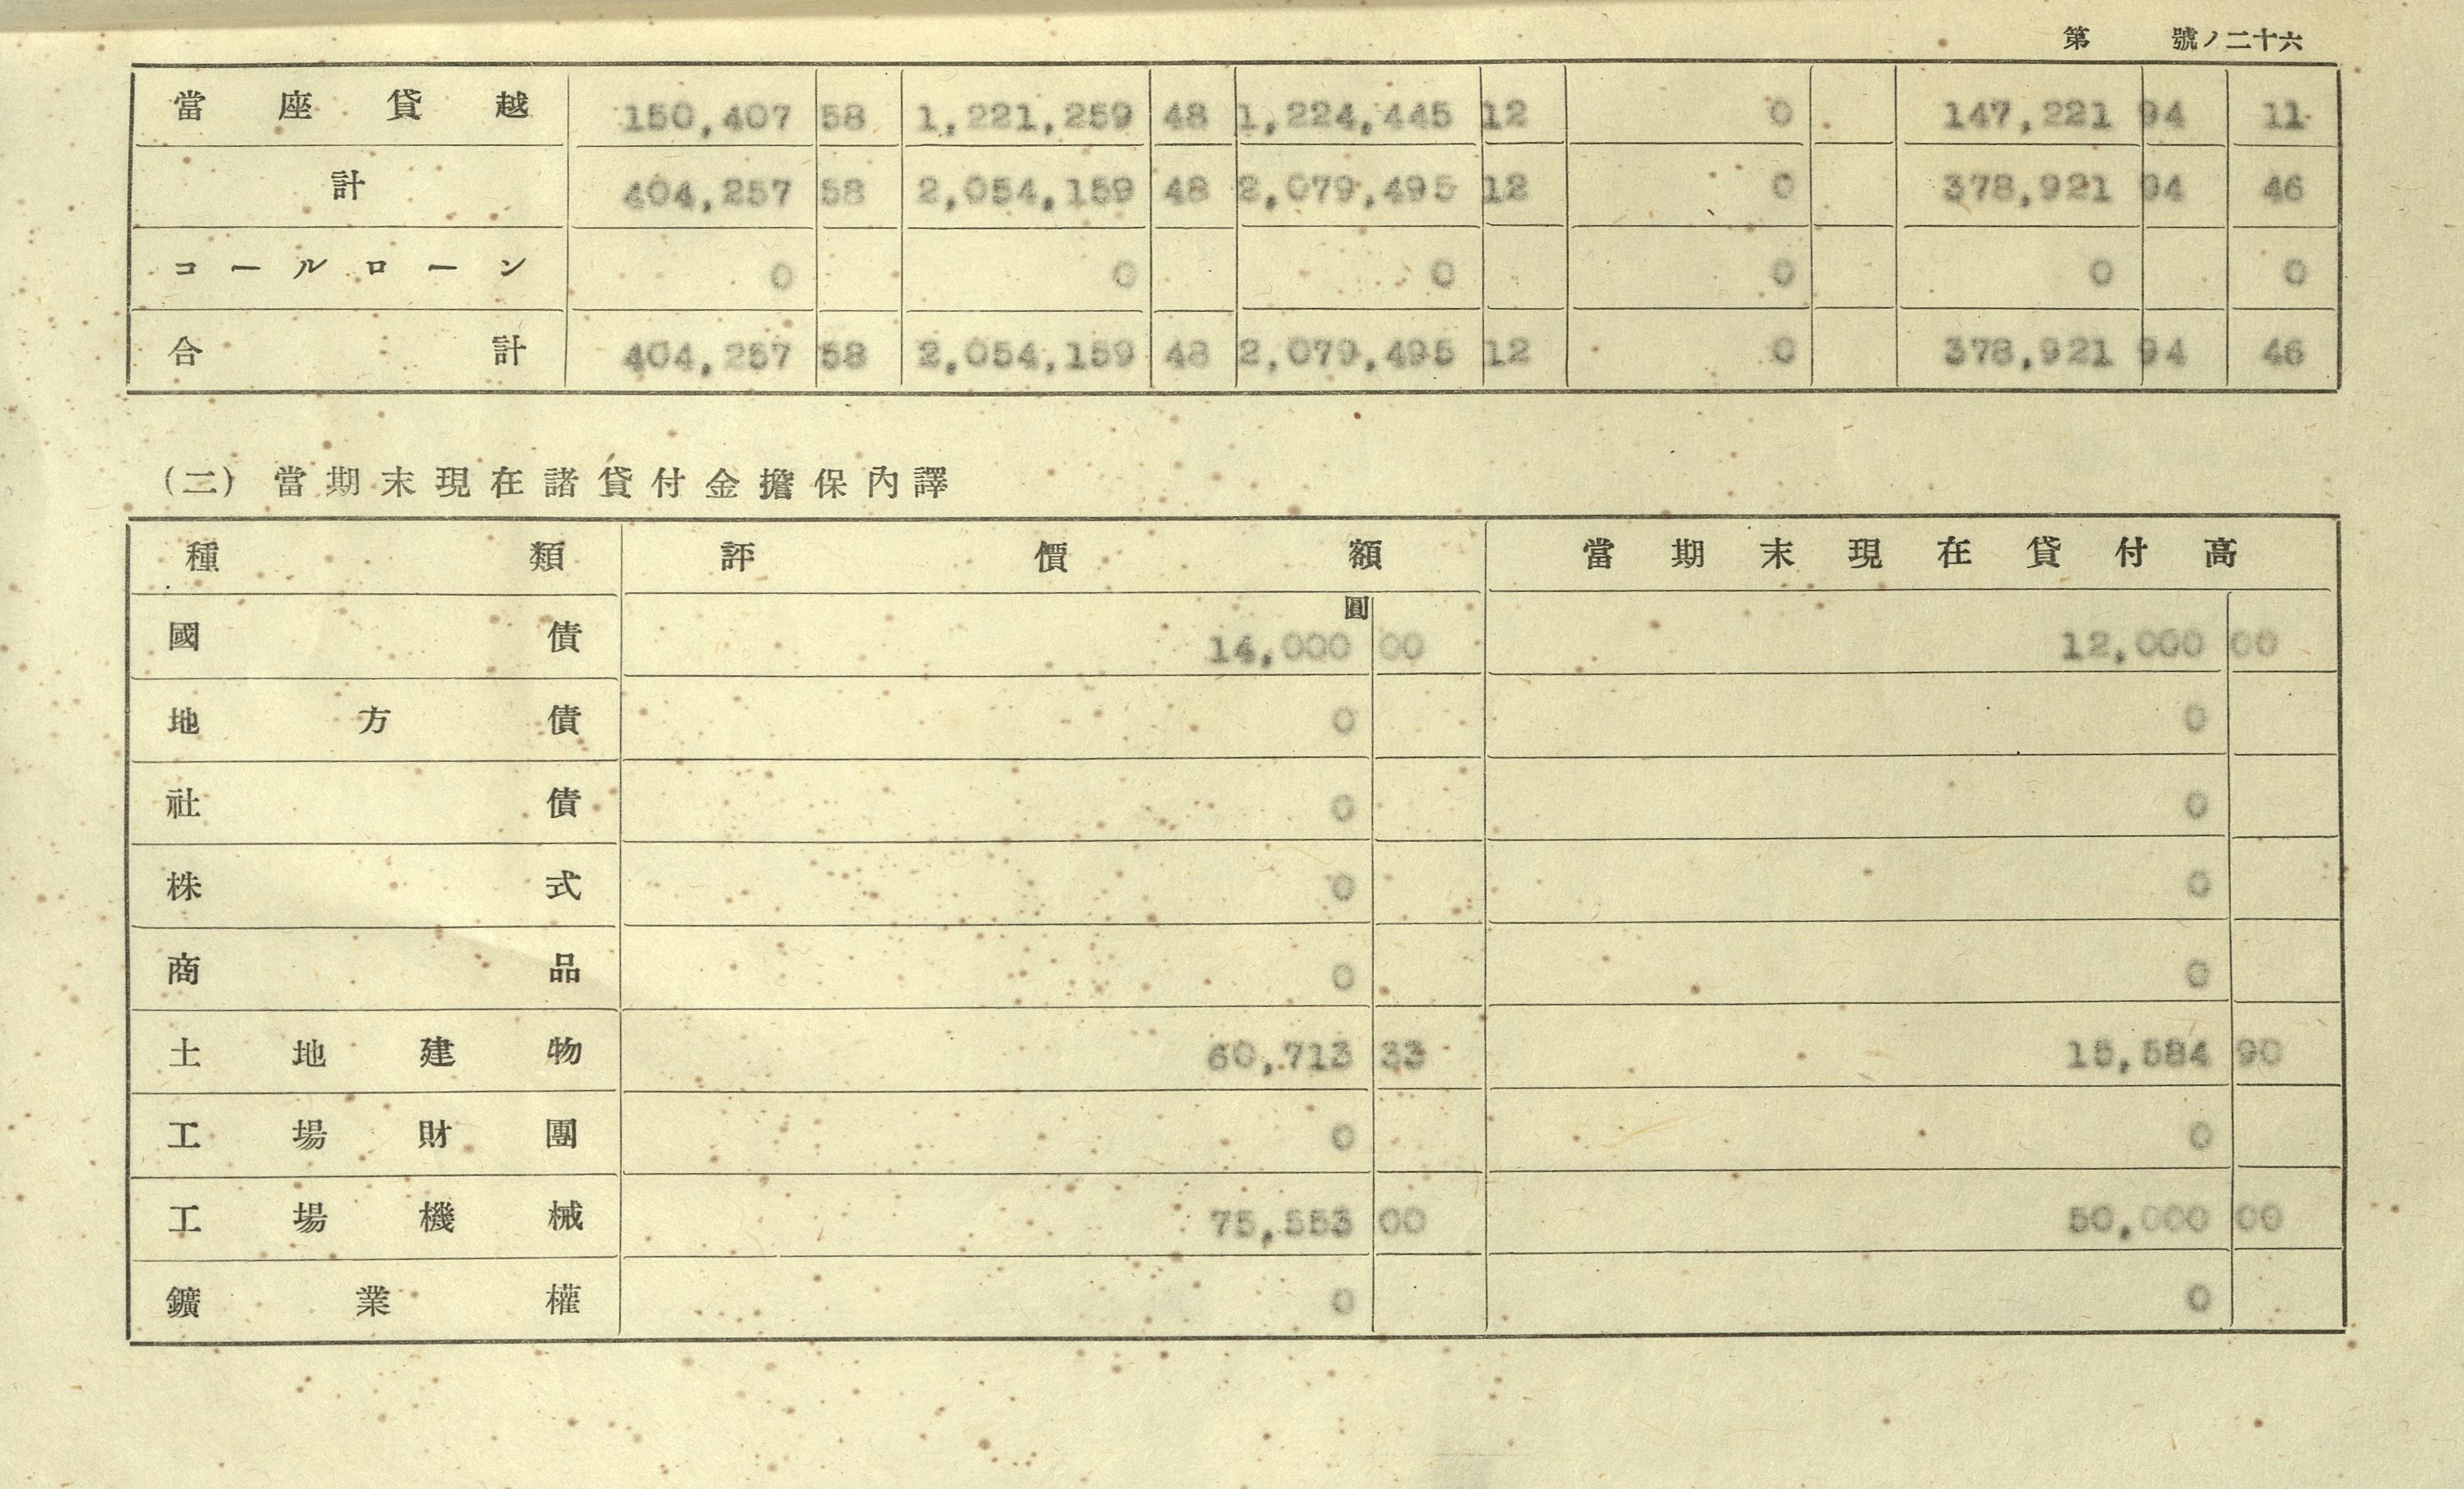 第 號ノ二十六
當座貸越 150,407 58 1,221,259 48 1,224,445 12 0 147,221 94 11
計 404,257 58 2,054,159 48 2,079,495 12 0 378,921 94 46
コールローン 0 0 0 0 0 0
合計 404,257 58 2,054,159 48 2,079,495 12 0 378,921 94 46
(二) 當期末現在諸貸付金擔保內譯
種類 評價額 當期末現在貸付高
圓
國債 14,000 00 12,000 00
地方債 0 0
社債 0 0
株式 0 0
商品 0 0
土地建物 60,713 33 15,584 90
工場財團 0 0
工場機械 75,553 00 50,000 00
鑛業權 0 0